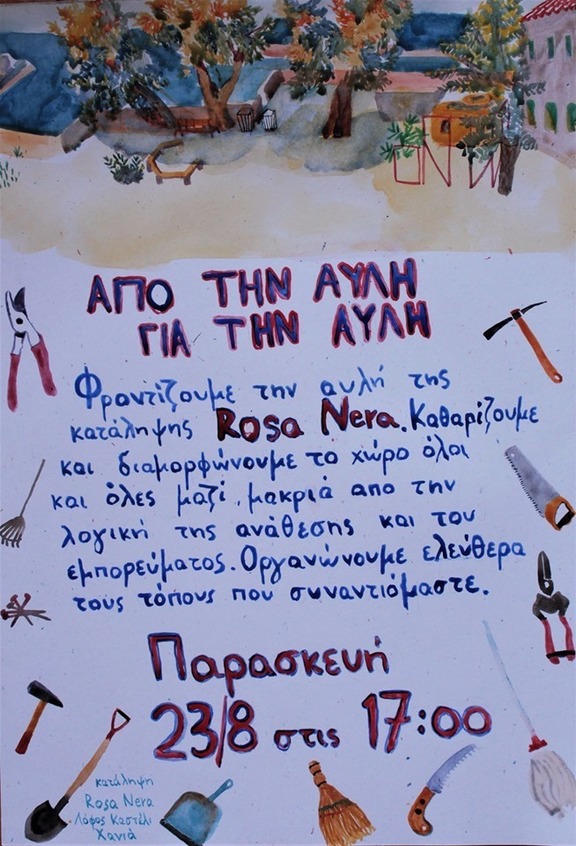 ΑΠΟ ΤΗΝ ΑΥΛΗ
ΓΙΑ ΤΗΝ ΑΥΛΗ
Φροντίζουμε την αυλή της
κατάληψης Rosa Nera. Καθαρίζουμε
και διαμορφώνουμε το χώρο όλοι
και όλες μαζί, μακριά απο την
λογική της ανάθεσης και του
εμπορεύματος. Οργανώνουμε ελεύθερα
τους τόπους που συναντιόμαστε.
Παρασκευή
23/8 στις 17:00
κατάληψη
Rosa Nera
Λόφος Καστέλι
Χανιά